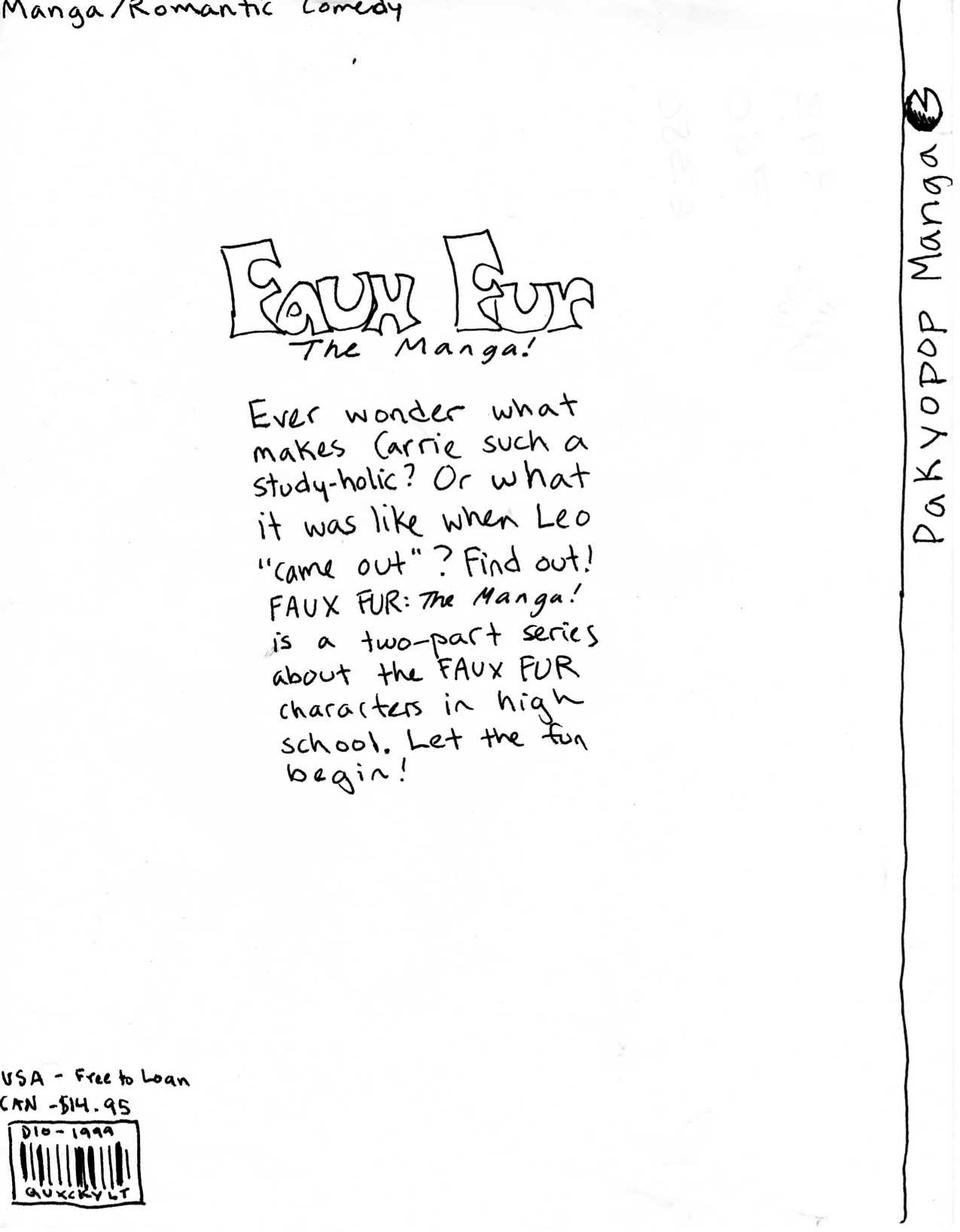 Manga/Romantic Comedy
Faux Fur
The Manga!
Ever wonder what
makes Carrie such a
study-holic? Or what
it was like when Leo
"came out"? Find out!
FAUX FUR: The Manga!
is a two-part series
about the FAUX FUR
characters in high
school. Let the fun
begin!
USA - Free to Loan
CAN -$14.95
D10-1999
QUXCKYLT
Pakyopop Manga